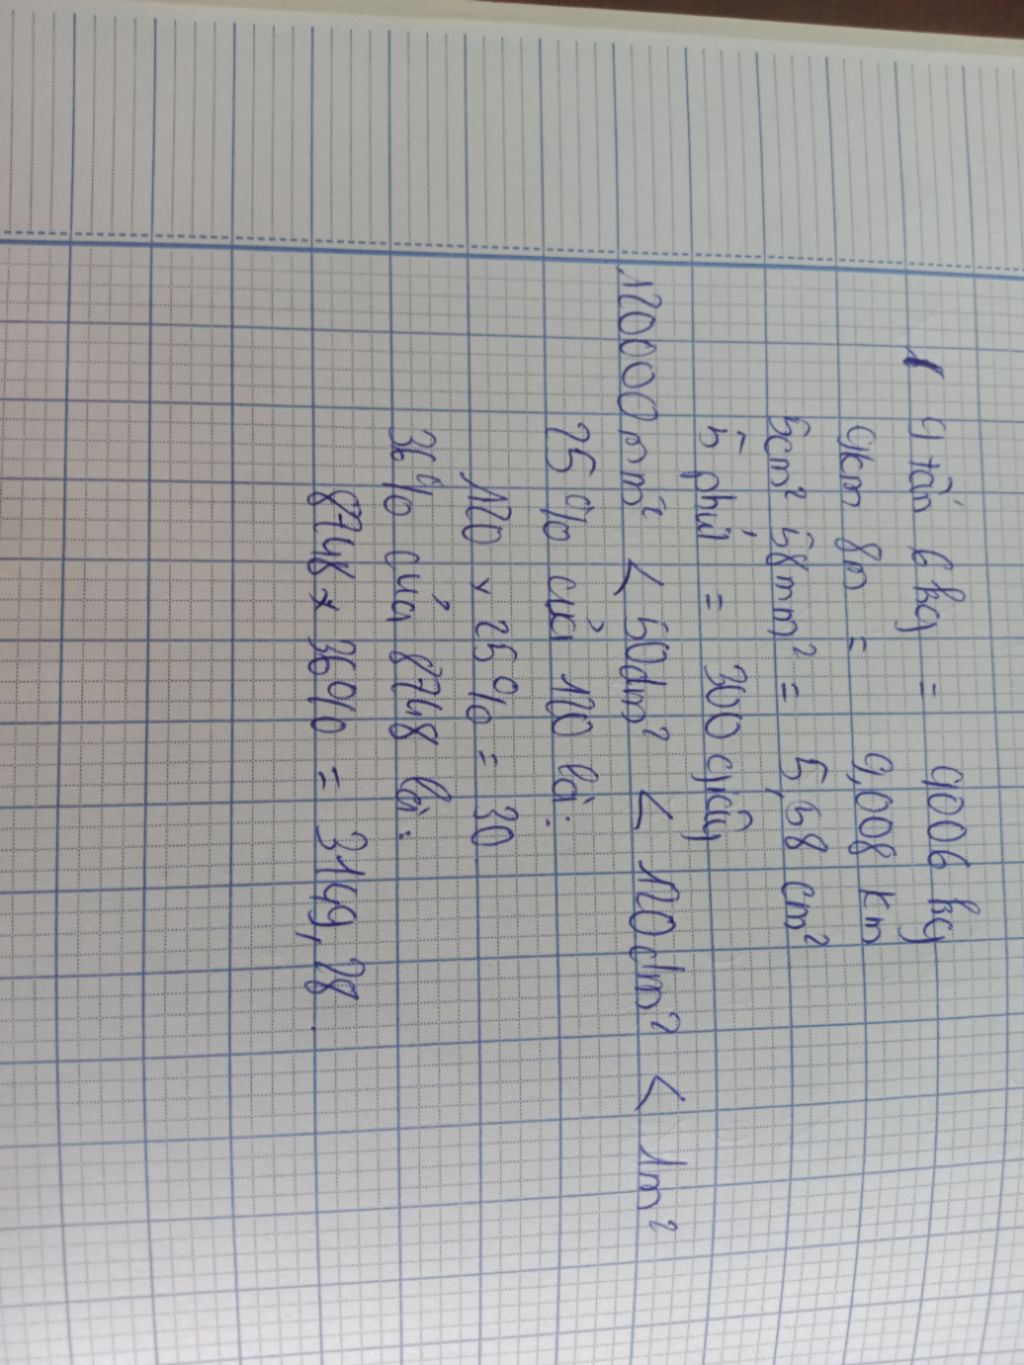 9 tấn 6 kg = 9006 kg
9km 8m = 9,008 km
5cm² 58mm² = 5,58 cm²
5 phút = 300 giây
120000mm² < 50dm² < 120dm² < 1m²
25% của 120 là:
120 × 25% = 30
36% của 8748 là:
8748 × 36% = 3149,28